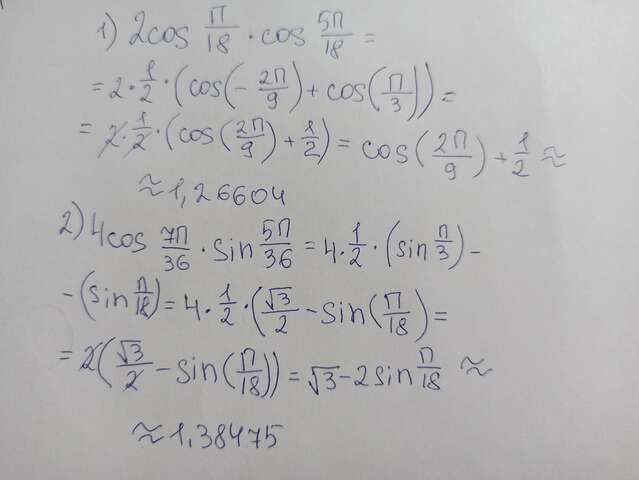 1) 2cos π/18 · cos 5π/18 =
= 2 · 1/2 · (cos(- 2π/9) + cos(π/3)) =
= 2 · 1/2 · (cos(2π/9) + 1/2) = cos(2π/9) + 1/2 ≈
≈ 1,26604
2) 4cos 7π/36 · sin 5π/36 = 4 · 1/2 · (sin π/3) -
- (sin π/18) = 4 · 1/2 · (√3/2 - sin(π/18) =
= 2(√3/2 - sin(π/18)) = √3 - 2sin π/18 ≈
≈ 1,38475